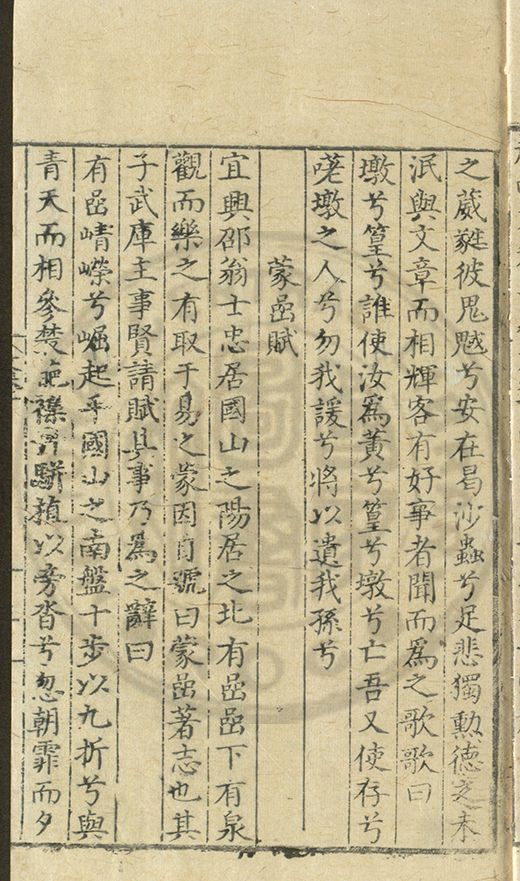 之葳蕤彼鬼魃兮安在曷沙蟲兮足悲獨勲德之未
泯與文章而相輝客有好事者聞而爲之歌歌曰
墩兮篁兮誰使汝爲黄兮篁兮墩兮亡吾又使存兮
嗟墩之人兮勿我諼兮將以遺我孫兮
蒙嵒賦
宜興邵翁士忠居國山之陽居之北有嵒嵒下有泉
觀而樂之有取于易之蒙因自號曰蒙嵒著志也其
子武庫主事賢請賦其事乃爲之辭曰
有嵒崝嶸兮崛起乎國山之南盤十步以九折兮與
青天而相參楚 襟 駢植以旁沓兮忽朝霏而夕